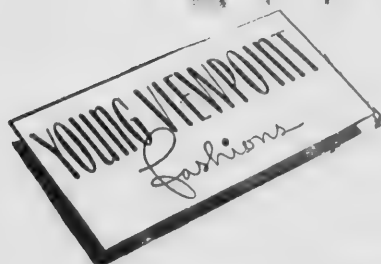 YOUNG VIEWPOINT
fashions